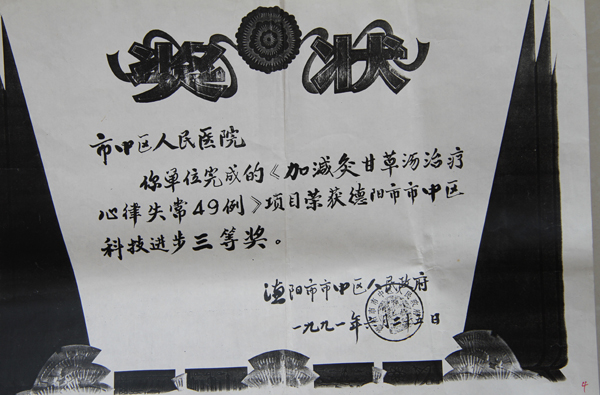 奖状
市中区人民医院
你单位完成的《加减灸甘草汤治疗
心律失常49例》项目荣获德阳市市中区
科技进步三等奖。
德阳市市中区人民政府
一九九一年 月二十五日
4